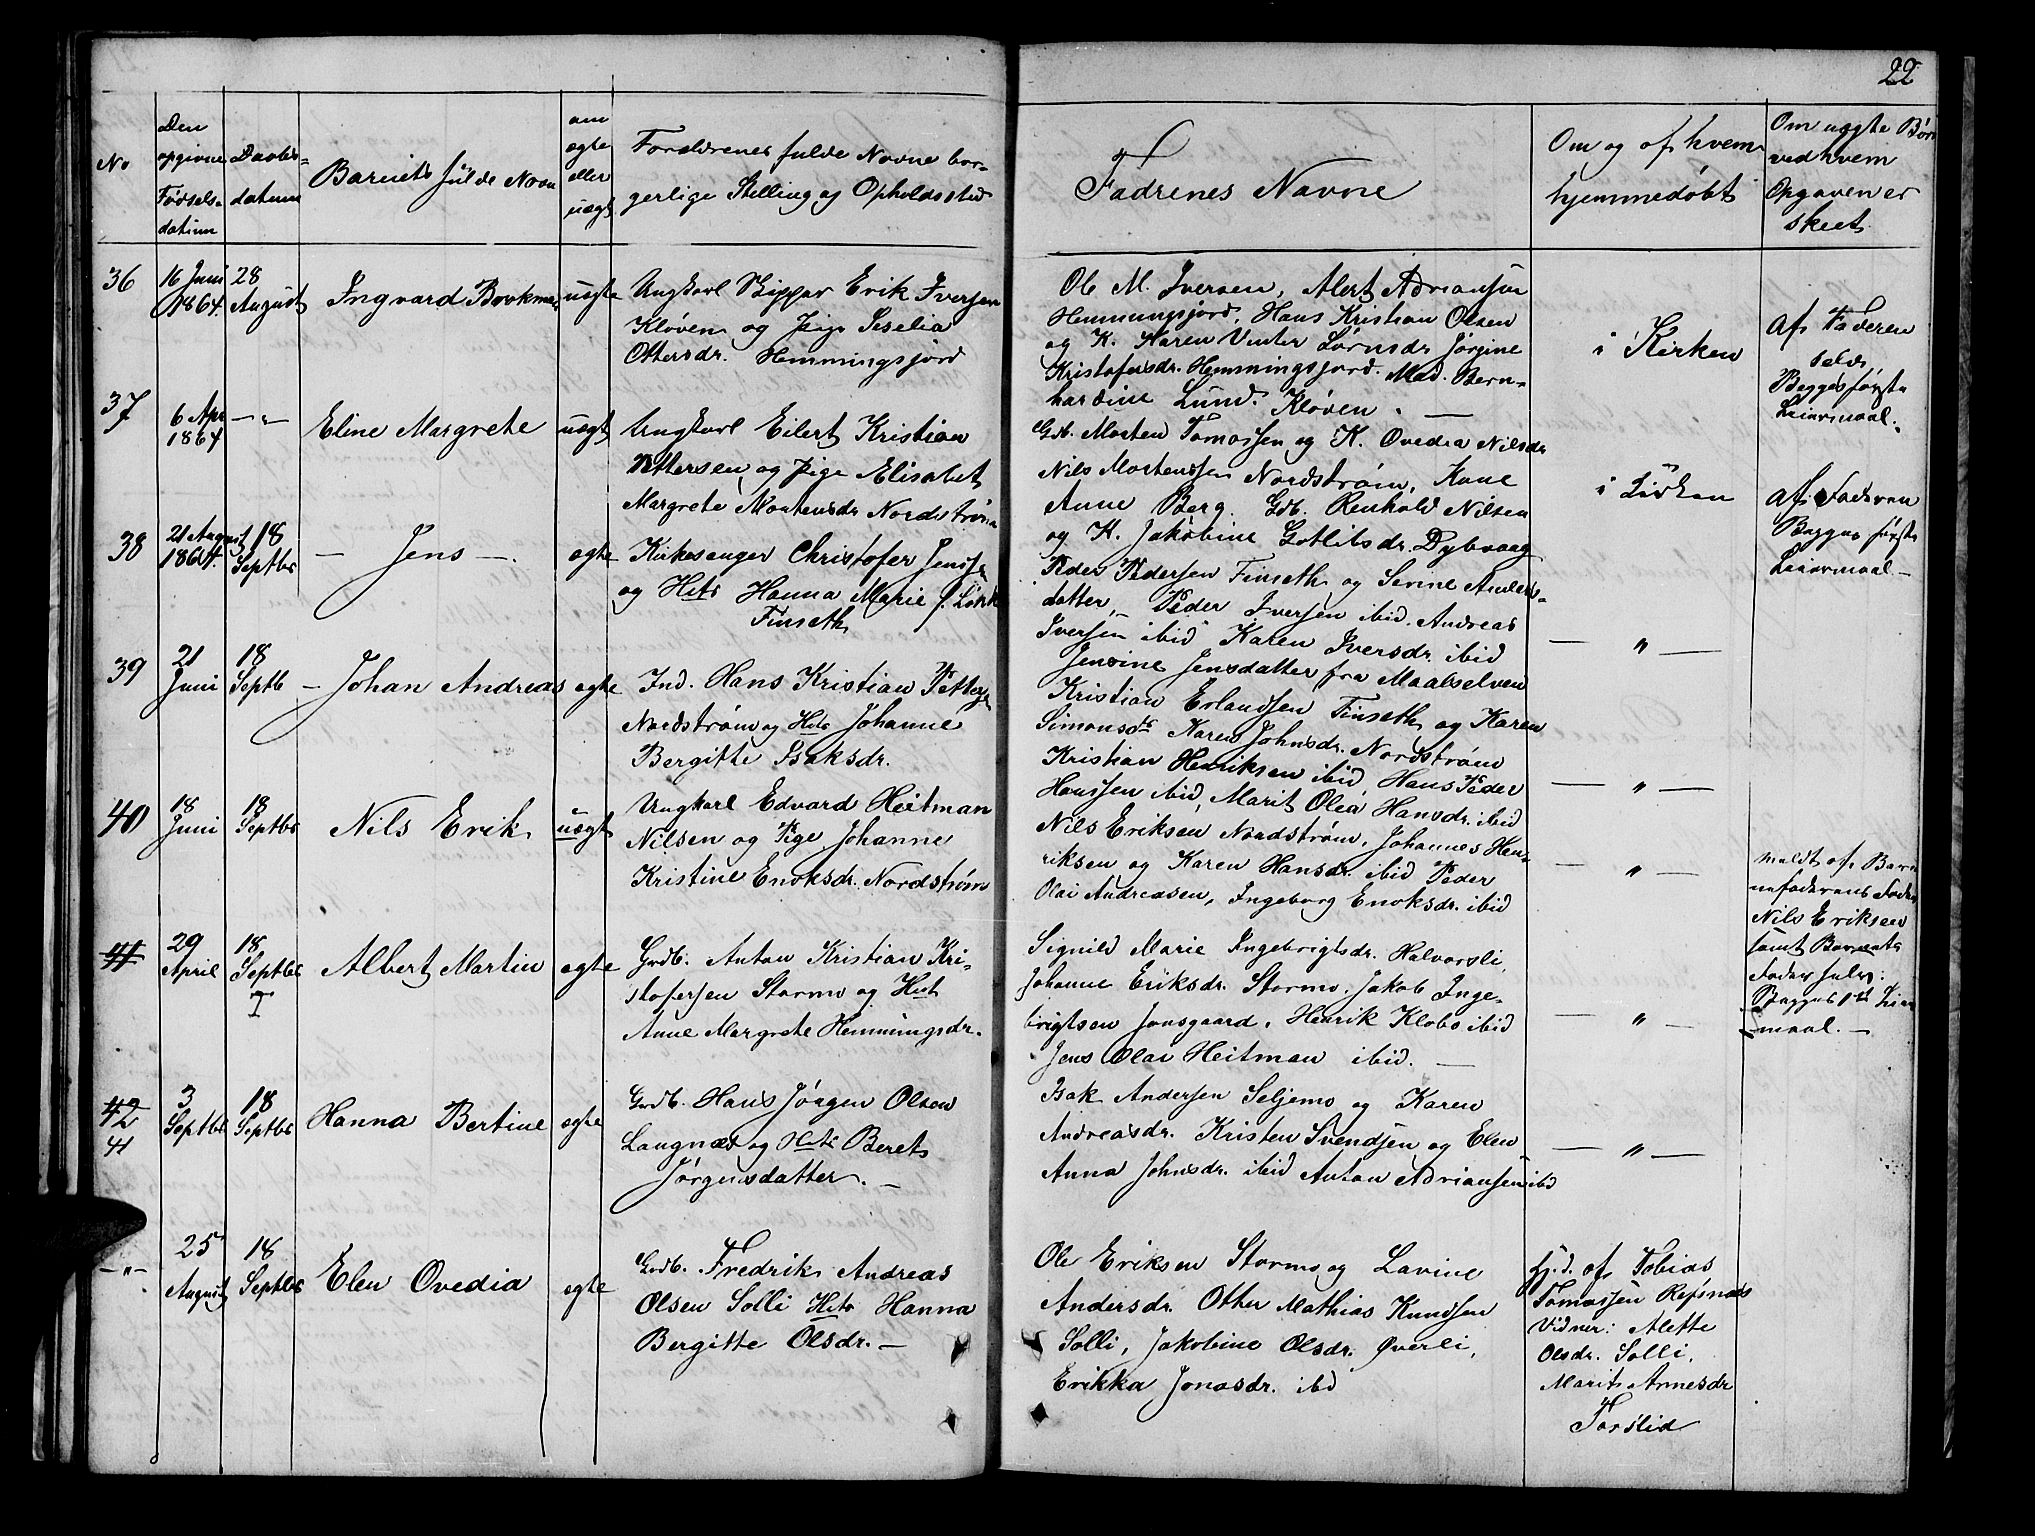 22
No
Den
opgivne
Fødsels-
datum
Daabs-
datum
Barnets fulde Navn
om
egte
eller
uægt
Forældrenes fulde Navne bor-
gerlige Stilling og Opholdssted
Fadrenes Navne
Om og af hvem
hjemmedøbt
Om uægte Børn
ved hvem
Opgaven er
skeet
36
16 Juni
1864.
28
August
Ingvard Bookman
uegte
Ungkarl Skipper Erik Iversen
Kløven og Pige Seselia
Ottersdr. Hemmingsjord
Ole M. Iversen, Alert Adriansen
Hemmingsjord, Hans Kristian Olsen
og K. Karen Vinter Lornsdr Jørgine
Kristofersdr. Hemmingsjord. Mad. Bern-
hardine Lund. Kløven. —
i Kirken
Af Faderen
selv
Begges første
Leiermaal.
37
6 Apr
1864
— " —
Eline Margrete
uægt
Ungkarl Eilert Kristian
Pettersen og Pige Elisabet
Margrete Mortensdr Nordstrøm
Gdb. Morten Tomassen og K. Ovedia Nilsdr
Nils Mortenssen Nordstrøm, Kone
Anne Berg. Gdb. Renhold Nilsen
og K. Jakobine Gotlibsdr. Dybvaag
i Kirken
Af Faderen
Begges første
Leiermaal —
38
21 August
1864.
18
Septbr
— Jens —.
egte
Kirkesanger Christofer Jenssen
og Hst Hanna Marie f.
Finseth
Peder Pedersen Finseth og Serine Anders-
datter, — Peder Iversen ibid. Andreas
Iversen ibid Karen Iversdr. ibid
Jensine Jensdatter fra Maalselven
— " —
39
21
Juni
18
Septb
— Johan Andreas
egte
Ind. Hans Kristian Petters
Nordstrøm og Hst Johanne
Bergitte Isaksdr.
Kristian Erlandsen Finseth og Karen
Simonsdr Karen Johnsdr. Nordstrøm
Kristian Henriksen ibid, Hans Peder
Hanssen ibid, Marit Olea Hansdr. ibid
— " —
40
18
Juni
18
Septbr
Nils Erik
uægt
Ungkarl Edvard Heitman
Nilsen og Pige Johanne
Kristine Enoksdr. Nordstrøm
Nils Eriksen Nordstrøm, Johannes Hen-
riksen og Karen Hansdr. ibid Peder
Olai Andreasen, Ingeborg Enoksdr. ibid
— " —
meldt af Barn
nefaderens Fader
Nils Eriksen
samt Barnets
Fader selv:
Begges 1st Leier
maal. —
41
29
April
18
Septbr
I
Albert Martin
egte
Grdb. Anton Kristian Kri-
stofersen Stormo og Hst
Anne Margrete Hemmingsdr.
Signild Marie Ingebrigtsdr. Halvorsli,
Johanne Eriksdr. Stormo, Jakob Inge-
brigtsen Jonsgaard, Henrik Klobs ibid
Jens Olai Heitman ibid. —
— " —
42
41
3
Septbr
18
Septbr
Hanna Bertine
egte
Grdb. Hans Jørgen Olsen
Langnæs og Hst Beret
Jørgensdatter. —
Isak Andersen Seljemo og Karen
Andreasdr. Kristen Svendsen og Elen
Anna Johnsdr. ibid Anton Adriansen ibid
— " —
— " —
25
August
18
Septbr
Elen Ovedia
egte
Grdb. Fredrik Andreas
Olsen Solli Hst Hanna
Bergitte Olsdr. —
Ole Eriksen Stormo og Lavine
Andersdr. Otter Mathias Knudsen
Solli, Jakobine Olsdr. Øverli,
Erikka Jonasdr. ibd
hj.d. af Tobias
Tomassen Refsnæs
Vidner: Alette
Olsdr. Solli,
Marit Arnesdr
Forslid